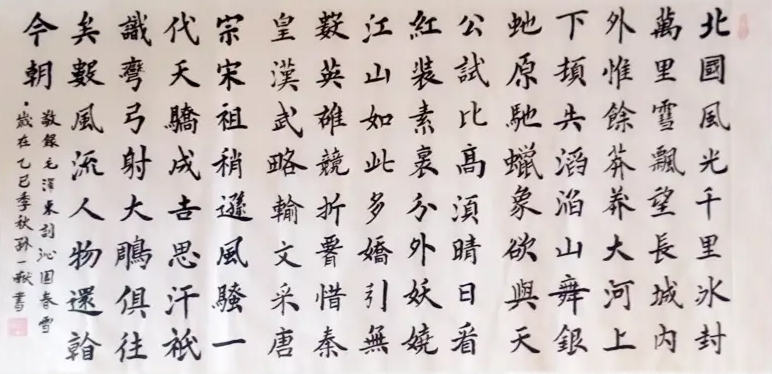 北國風光千里冰封
萬里雪飄望長城内
外惟餘莽莽大河上
下頓失滔滔山舞銀
虵原馳蠟象欲與天
公試比髙須晴日看
紅裝素裹分外妖嬈
江山如此多嬌引無
數英雄競折腰惜秦
皇漢武略輸文采唐
宗宋祖稍遜風騷一
代天驕成吉思汗祗
識彎弓射大鵰俱往
矣數風流人物還看
今朝
敬録毛澤東詞沁園春雪
歲在乙巳季秋孫一書